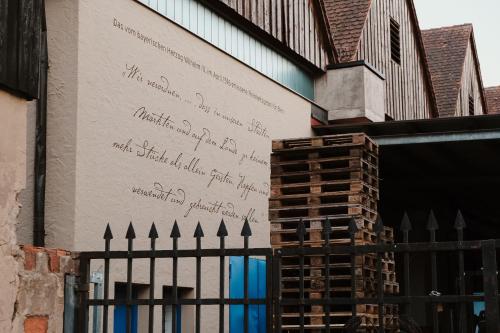 Das vom bayerischen Herzog Wilhelm IV. im April 1516 erlassene Reinheitsgebot für Bier:
„Wir verordnen, ... dass in unseren Städten,
Märkten und auf dem Lande zu keinem
mehr Stücke als allein Gersten, Hopfen und
verwendet und gebraucht werden sollen